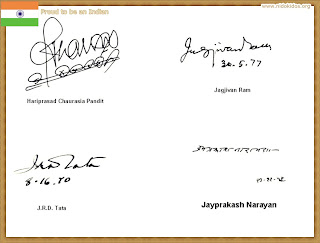 Proud to be an Indian
www.indokidos.org
Hariprasad Chaurasia Pandit
Jagjivan Ram
30.5.77
Jagjivan Ram
J.R.D. Tata
8-16.80
J.R.D. Tata
Jayprakash Narayan